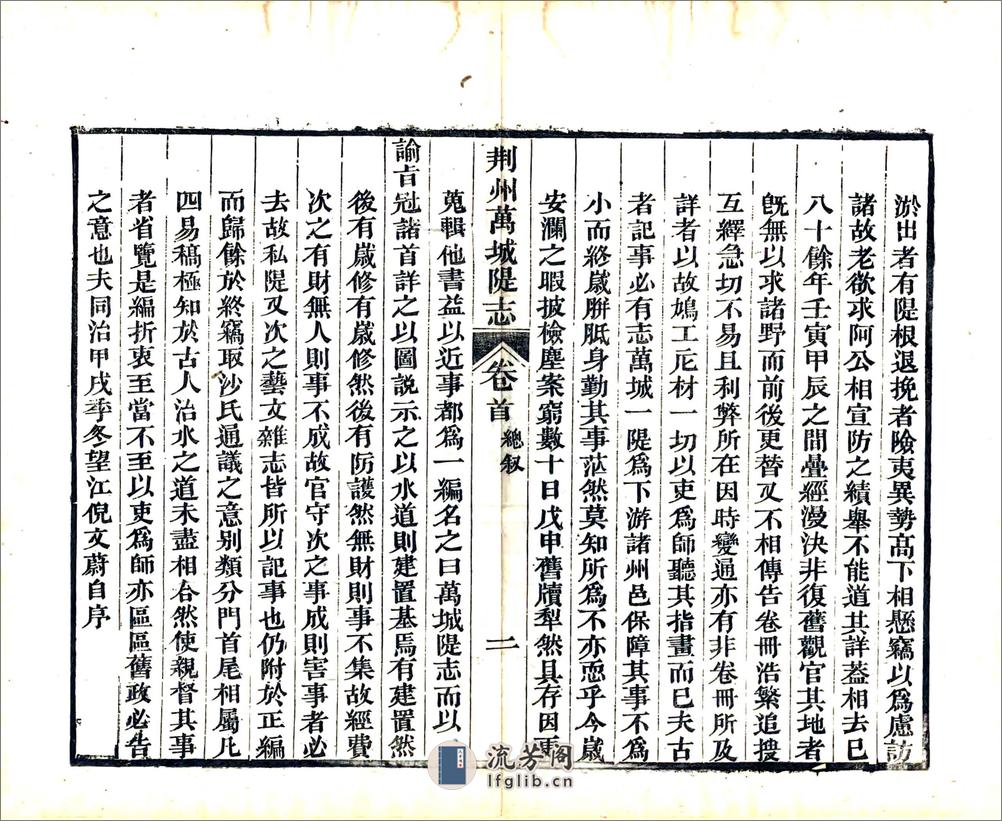 淤出者有隄根退挽者險夷異勢高下相懸竊以爲慮訪
諸故老欲求阿公相宣防之績舉不能道其詳葢相去已
八十餘年壬寅甲辰之間疊經漫決非復舊觀官其地者
旣無以求諸野而前後更替又不相傳告卷冊浩繁追搜
互繹急切不易且利弊所在因時變通亦有非卷冊所及
詳者以故鳩工庀材一切以吏爲師聽其指畫而已夫古
者記事必有志萬城一隄爲下游諸州邑保障其事不爲
小而終歲胼胝身勤其事茫然莫知所爲不亦恧乎今歲
安瀾之暇披檢塵案窮數十日戊申舊牘犁然具存因
荆州萬城隄志 卷首 總叙 二
蒐輯他書益以近事都爲一編名之曰萬城隄志而以
諭旨冠諸首詳之以圖說示之以水道則建置基焉有建置然
後有歲修有歲修然後有防護然無財則事不集故經費
次之有財無人則事不成故官守次之事成則害事者必
去故私隄又次之藝文雜志皆所以記事也仍附於正編
而歸餘於終竊取沙氏通議之意別類分門首尾相屬凡
四易稿極知於古人治水之道未盡相合然使親督其事
者省覽是編折衷至當不至以吏爲師亦區區舊政必告
之意也夫同治甲戌季冬望江倪文蔚自序
流芳阁
lfglib.cn